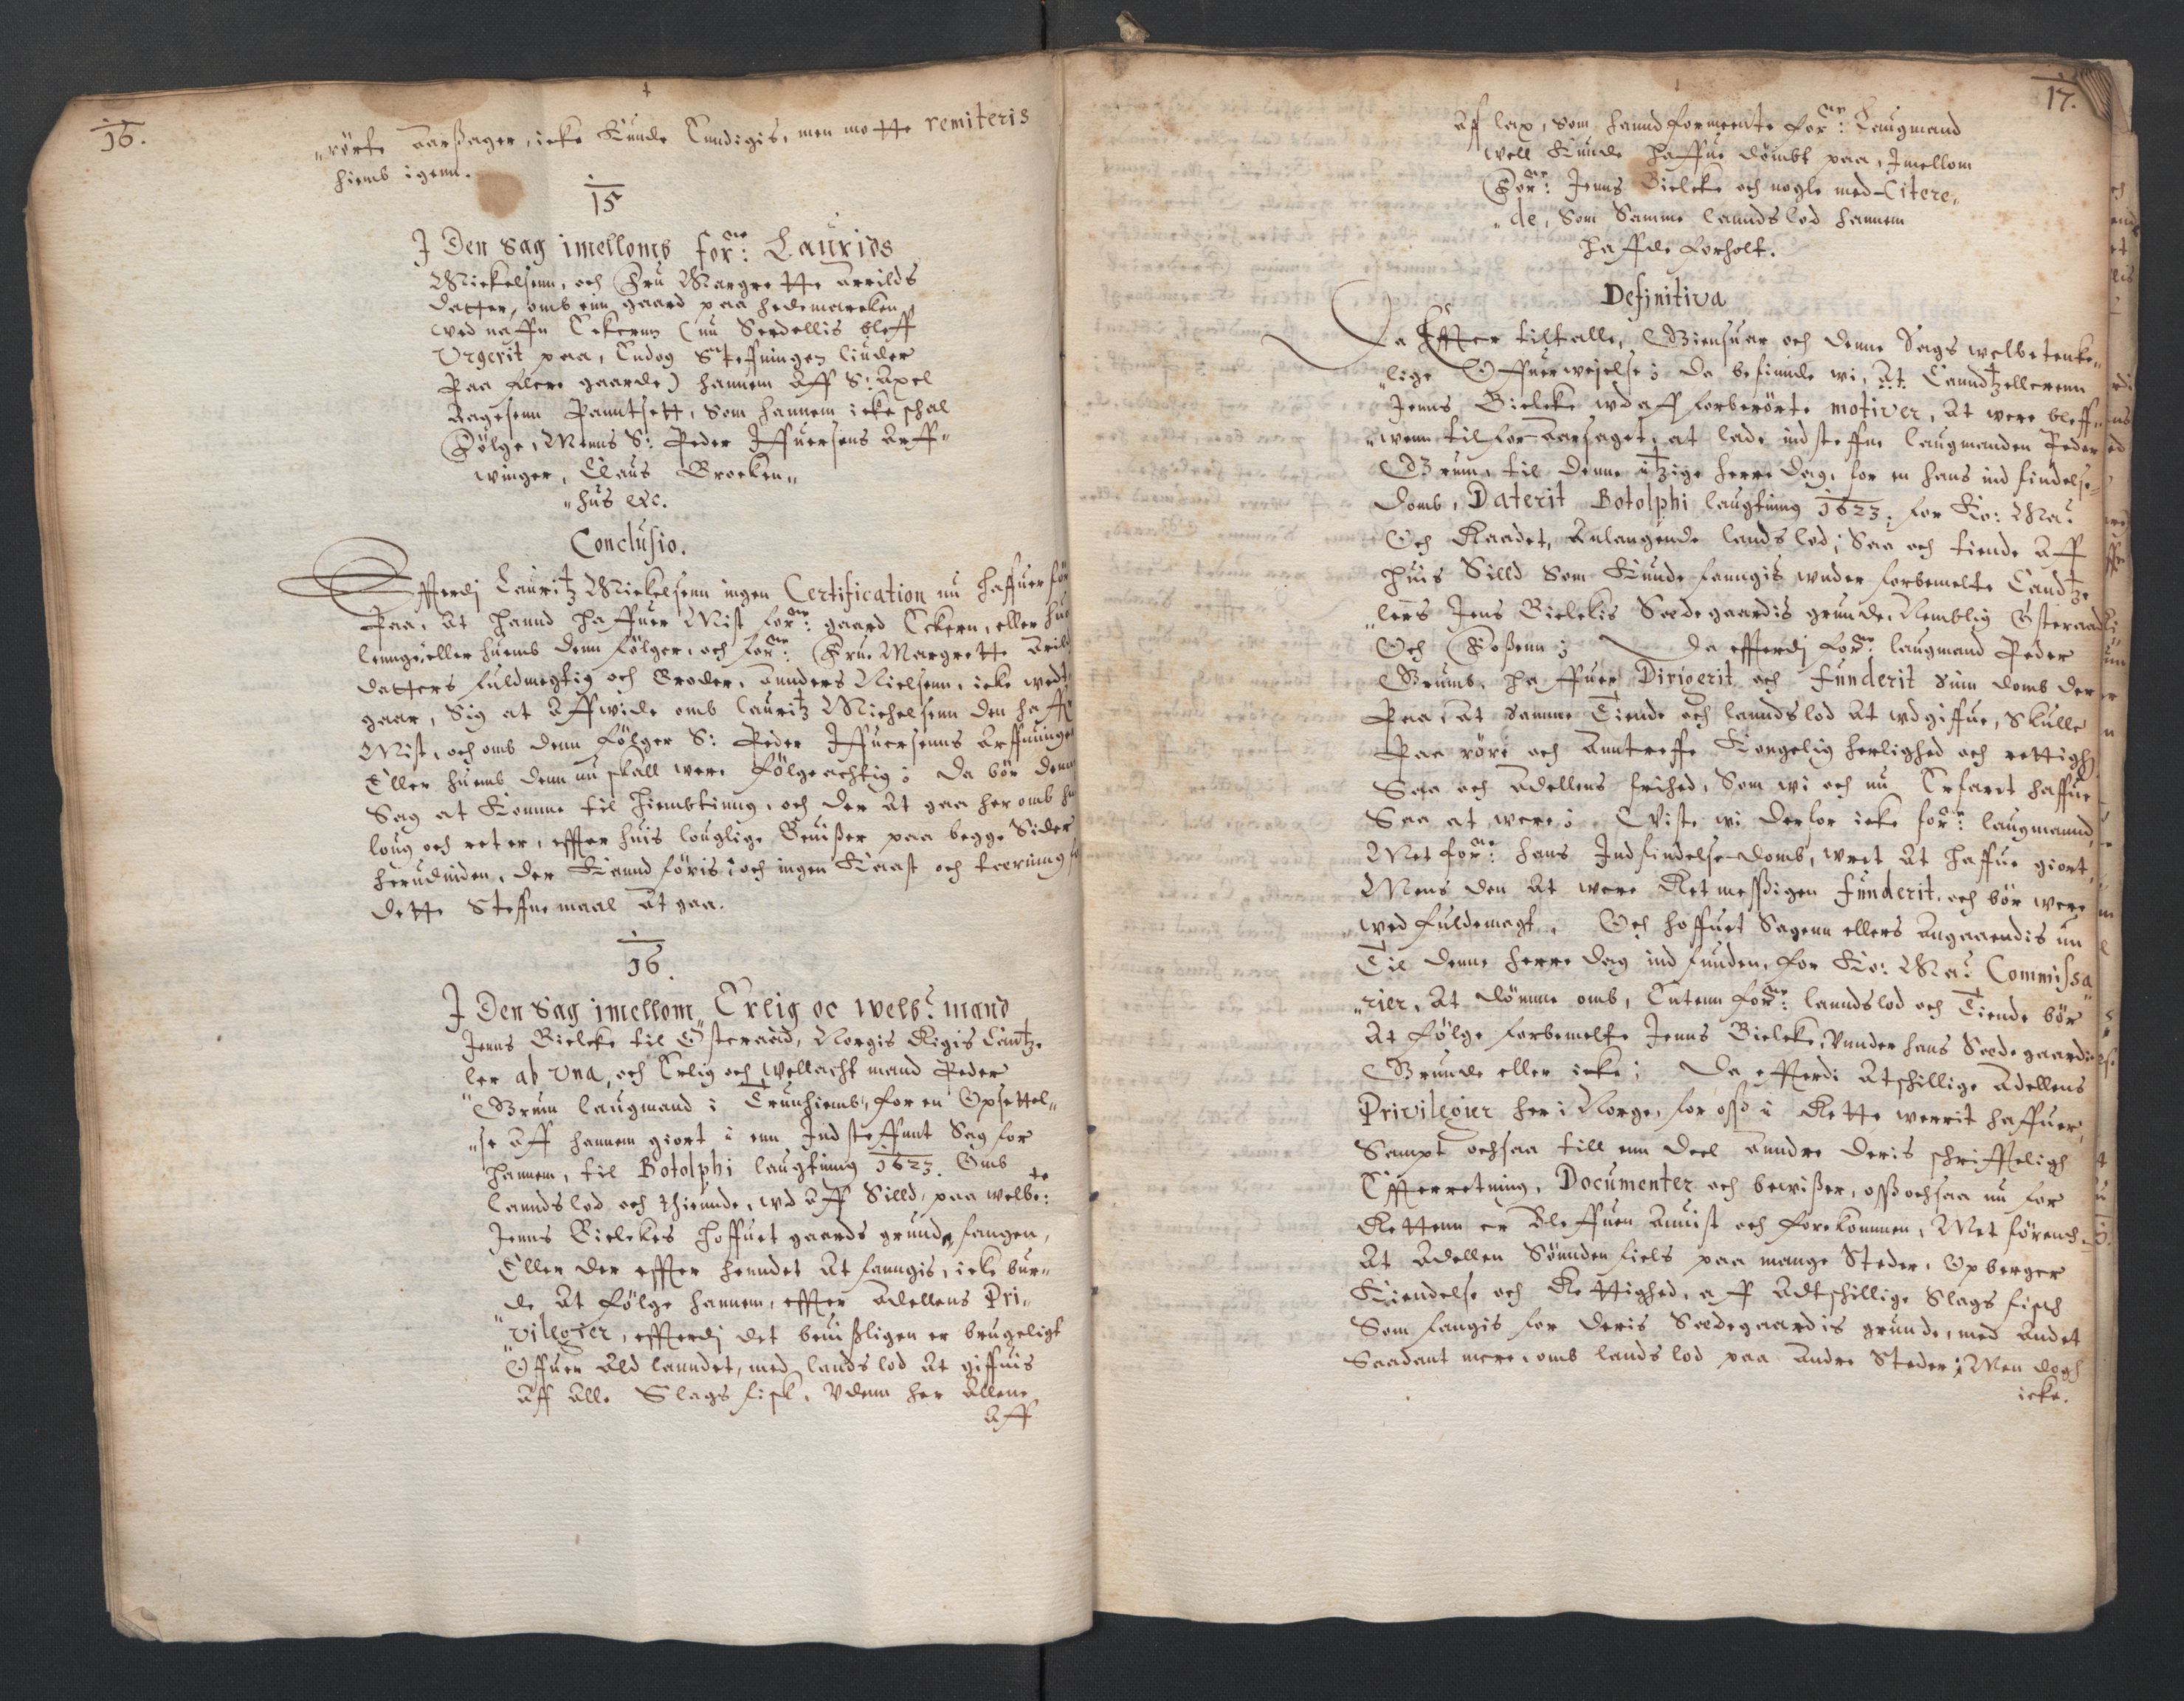 16.
„rörte Aarßager, icke Kunde Endigis, men motte remiteris
hiemb igenn.
15
J Den Sag imellomb forne: Laurids
Mickelsenn, och Fru Margrette Arrilds
datter, omb enn gaard paa hedemarcken
ved naffn Eckernn (nu Serdellis bleff
Urgerit paa, Endog Steffningen liuder
Paa flere gaarde) hannem Aff S: Axel
Aagesenn Panntsett, Som hannem icke schal
Fölge, Menns S: Peder Iffuersens Arff„
winger, Claus Brocken„
„hus etc.
Conclusio.
Efftterdj Lauritz Mickelsenn ingen Certification nu haffuer för
Paa, At hannd haffuer Mist forne: gaard Eckern, eller hu
lennge, eller huemb denn fölger, och forne: Frue Margrette Arild
datters fuldmegtig och Broder, Annders Nielsenn, icke wedt
gaar, Sig at Affwide omb Lauritz Michelsenn den haff
Mist, och omb denn fölger S: Peder Iffuersenns Arffuinge
Eller huemb denn nu skall were fölgeachtig; Da bör denn
Sag at Komme til hiembtinng, och der At gaa her omb hu
loug och ret er, effter huis louglige Beuißer paa begge Sider
herudinden, der Kannd föris, och ingen Kaast och teering
dette Steffnemaal At gaa.
16.
J Den Sag imellom Erlig oc welb: mand
Jenns Bielcke til Österaad, Norgis Rigis Cantze
„ler ab una, och Erlig och wellacht mand Peder
Grum laugmand i Trunhiemb, for en Opsettel„
„se Aff hannem giort i enn Jndsteffnt Sag for
hannem, til Botolphi laugtinng 1623. Omb
lanndslod och thiennde, ud Aff Silld, paa welbte:
Jenns Bielckes hoffuet gaards grunde fangen,
Eller der effter henndet At fanngis, icke bur„
de At fölge hannem, effter Adellens Pri„
„vilegier, efftterdj det beuißligen er brugeligt
Offuer Ald lanndet, med landslod At giffuis
Aff Alle Slags fisk, Vdenn her Allene
Aff
17.
Aff lax, som hannd formeente forne: Laugmand
well Kunde haffue dömbt paa, Jmellom
Forne: Jenns Bielcke och nogle med Citere„
„de, Som Samme lanndslod hannem
haffde forholt.
Definitiva
Da Effter tiltalle, Giensuar och denne Sags welbetencke„
„lige Offuerweielse; Da befinnde wi, At Canndtzellerenn
Jenns Bielcke udaff forberörte motiver, At were bleff„
„wenn til foraarsaget, at lade indsteffne laugmanden Peder
Grum, til denne itzige herredag, for en hans indfindelse„
domb, Daterit Botolphi laugtinng 1623. for Ko: Ma:
Och Raadet, Anlangende landslod; Saa och tiende Aff
huis Silld Som Kunde fanngis under forbemelte Cantze
„lers Jens Bielckis Sædegaardis grunde Nemblig Österaad
Och Foßenn; Da efftterdj forne: laugmand Peder
Grumb, haffuer Dirigerit och funderit siin domb der
Paa, At samme Tiende och lanndslod At udgiffue, Skulle
Paa röre och Anntreffe Kongelig herlighed och rettigh
Saa och Adellens frihed, Som wi och nu Erfaret haffue
Saa at were; Viste wi derfor icke forne: laugmannd,
Met forne: hans Jndfindelse domb, wret At haffue giort,
Mens den At were Retmeßigen funderit, och bör were
„wed fuldemagt. Och hoffuet Sagenn ellers Angaaendis nu
Til denne herredag indfunden, for Ko: Ma: Commissa
„rier, At dömme omb, Entenn forne: lanndslod och Tiende bör
At fölge forbemelte Jenns Bielcke, Unnder hans Sædegaardis
Grunde eller icke; Da efftterdi Atschillige Adellens
Privilegier her i Norge, for oß i Rette werrit haffuer,
Sampt ochsaa till enn deel Anndre deris schrifftteligh
Effterretning, Documenter och bewißer, oß ochsaa nu for
Rettenn er Bleffuen Anuist och forekommen, Met förende
At Adellen Sönnden fiels paa mange Steder, Opberger
Kiendelse och Rettighed, aff Adtschillige Slags fisch
Som fangis for deris Sædegaardis grunde, med Andet
Saadant mere, omb landslod paa Andre Steder; Men dogh
icke.